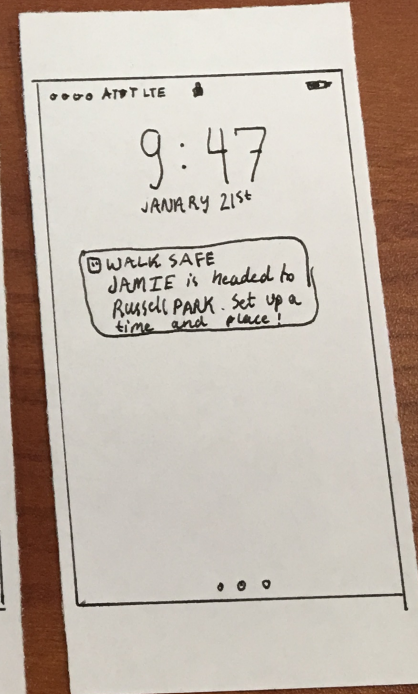 AT&T LTE
9:47
JANARY 21st
WALK SAFE
JAMIE is headed to
Russell PARK. Set up a
time and place!